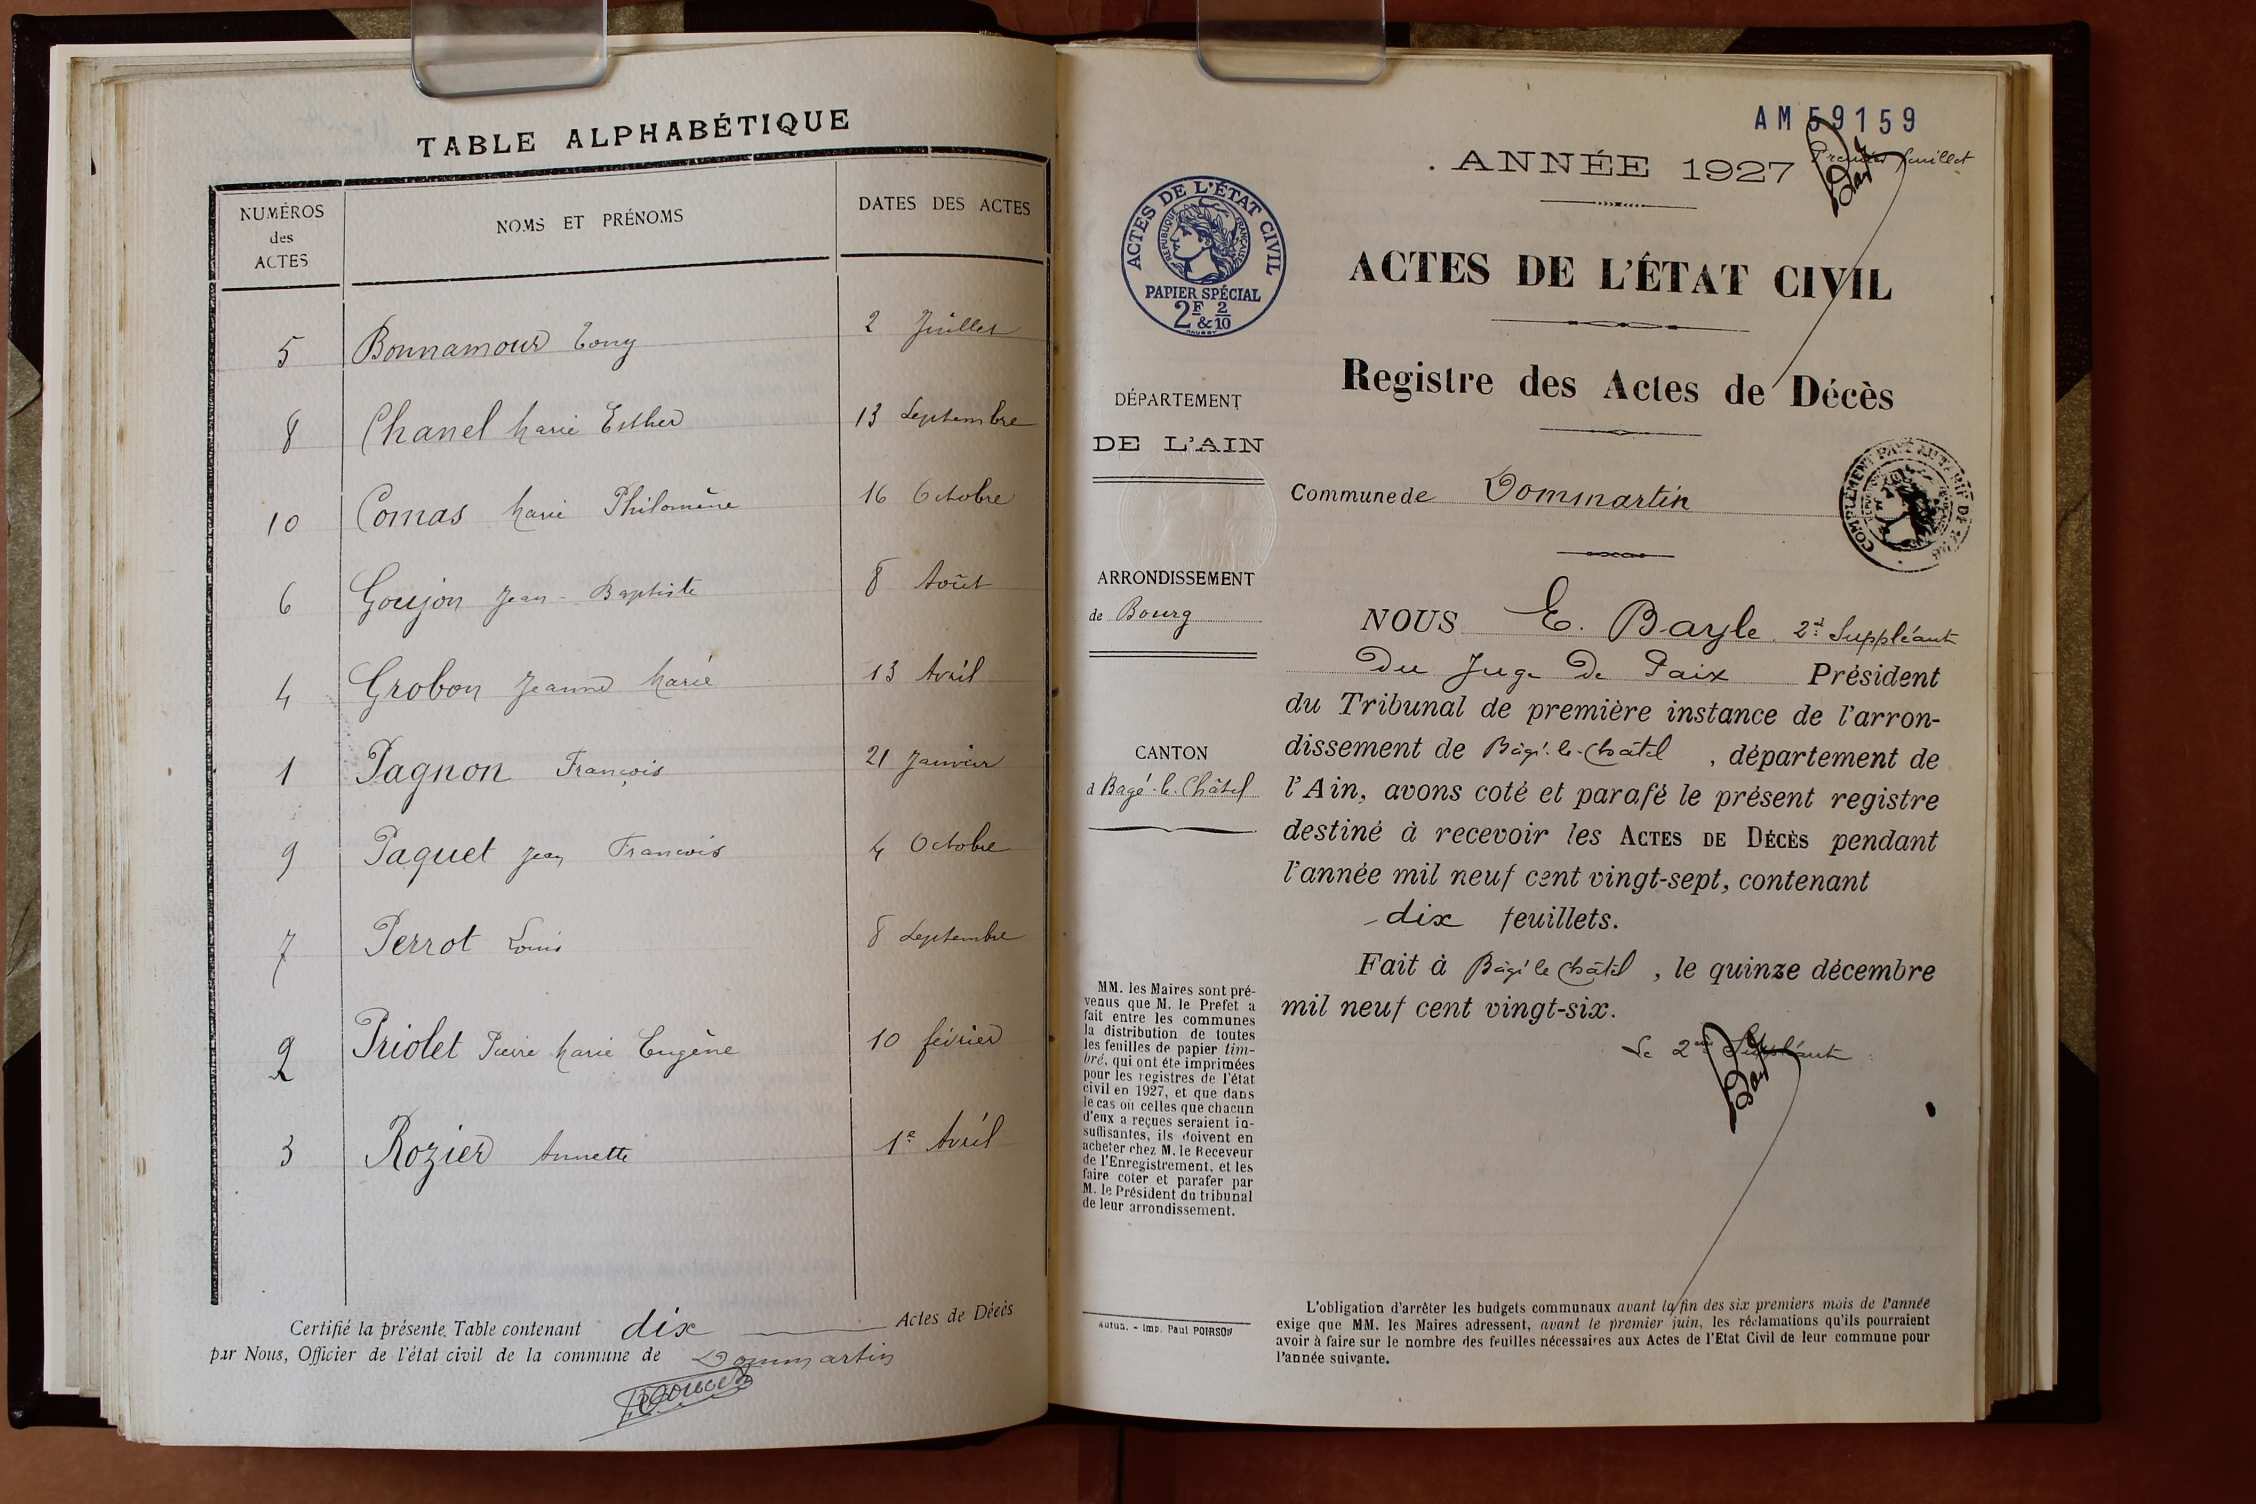 TABLE ALPHABÉTIQUE
NUMÉROS des ACTES NOMS ET PRÉNOMS DATES DES ACTES
5 Bonnamour Tony 2 Juillet
8 Chanel Marie Esther 13 Septembre
10 Comas Marie Philomène 16 Octobre
6 Goujon Jean-Baptiste 8 Août
4 Grobon Jeanne Marie 13 Avril
1 Pagnon François 21 Janvier
9 Paquet Jean François 4 Octobre
7 Perrot Louis 8 Septembre
2 Priolet Pierre Marie Eugène 10 février
3 Rozier Annette 1er Avril
Certifié la présente Table contenant dix Actes de Décès
par Nous, Officier de l'état civil de la commune de Dommartin
AM 59159
Premier feuillet
ANNÉE 1927
Bayle
ACTES DE L'ÉTAT CIVIL
RÉPUBLIQUE FRANÇAISE
PAPIER SPÉCIAL
2F & 2/10
ACTES DE L'ÉTAT CIVIL
Registre des Actes de Décès
DÉPARTEMENT
DE L'AIN
Commune de Dommartin
COMPLÉMENT PAYÉ AU TARIF DE
ARRONDISSEMENT
de Bourg
CANTON
d Bagé-le-Châtel
MM. les Maires sont pré-
venus que M. le Prefet a
fait entre les communes
la distribution de toutes
les feuilles de papier tim-
bré, qui ont été imprimées
pour les registres de l'état
civil en 1927, et que dans
le cas où celles que chacun
d'eux a reçues seraient in-
suffisantes, ils doivent en
acheter chez M. le Receveur
de l'Enregistrement, et les
faire coter et parafer par
M. le Président du tribunal
de leur arrondissement.
Autun. - Imp. Paul POIRSON
NOUS E. Bayle 2d Suppléant
du Juge de Paix Président
du Tribunal de première instance de l'arron-
dissement de Bâgé-le-Châtel, département de
l'Ain, avons coté et parafé le présent registre
destiné à recevoir les ACTES DE DÉCÈS pendant
l'année mil neuf cent vingt-sept, contenant
dix feuillets.
Fait à Bâgé le Châtel, le quinze décembre
mil neuf cent vingt-six.
Le 2me Suppléant
Bayle
L'obligation d'arrêter les budgets communaux avant la fin des six premiers mois de l'année
exige que MM. les Maires adressent, avant le premier juin, les réclamations qu'ils pourraient
avoir à faire sur le nombre des feuilles nécessaires aux Actes de l'Etat Civil de leur commune pour
l'année suivante.